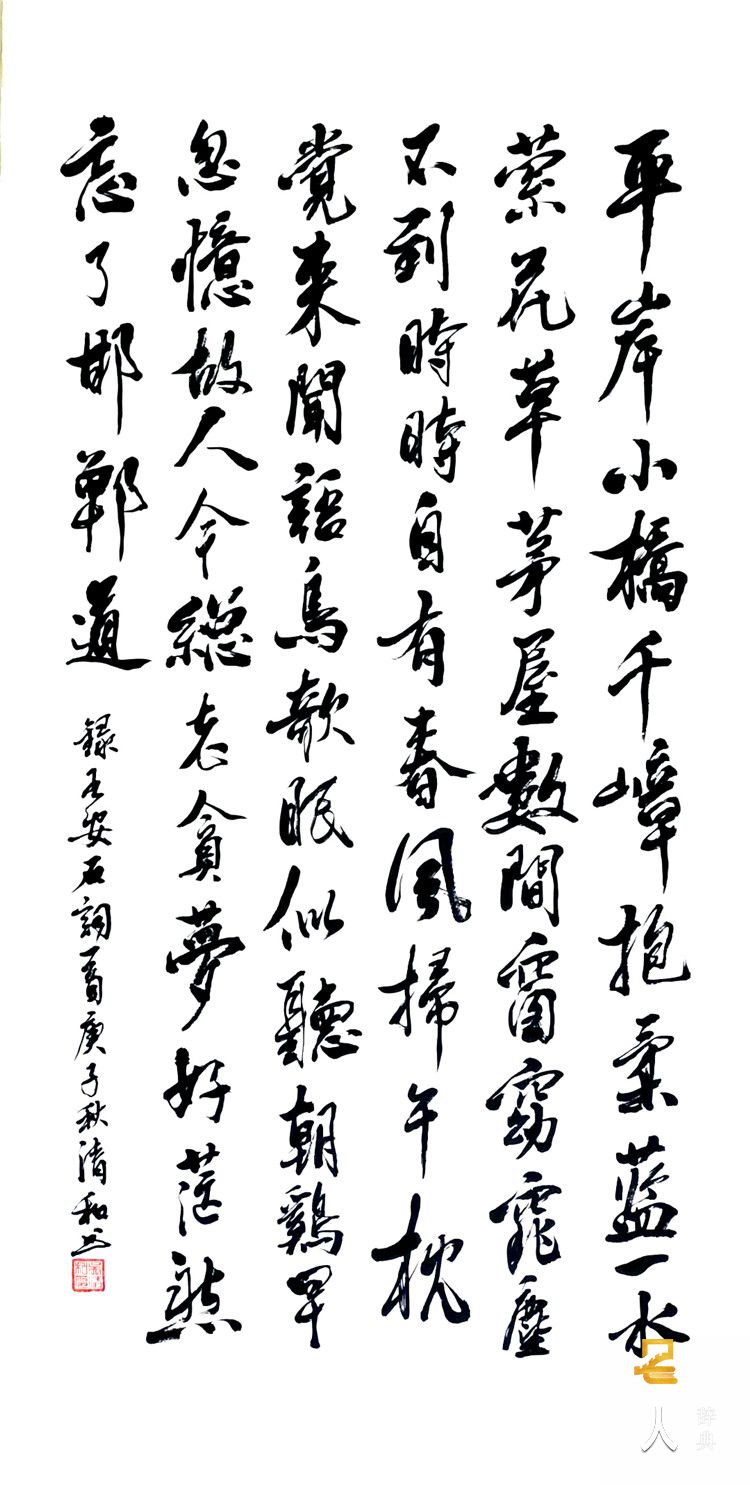 平岸小橋千嶂抱柔藍一水
縈花草茅屋數間窗窈窕塵
不到時時自有春風掃午枕
覺來聞語鳥欹眠似聽朝鷄早
忽憶故人今總老貪夢好茫然
忘了邯鄲道
録王安石詞一首庚子秋清和书
人
辞典